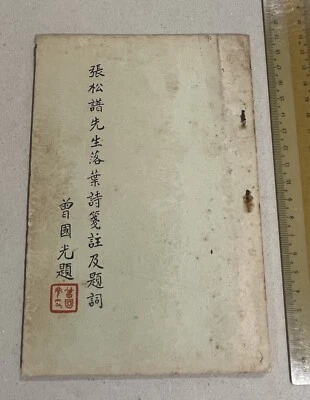 張松譜先生落葉詩箋註及題詞
曾國光題